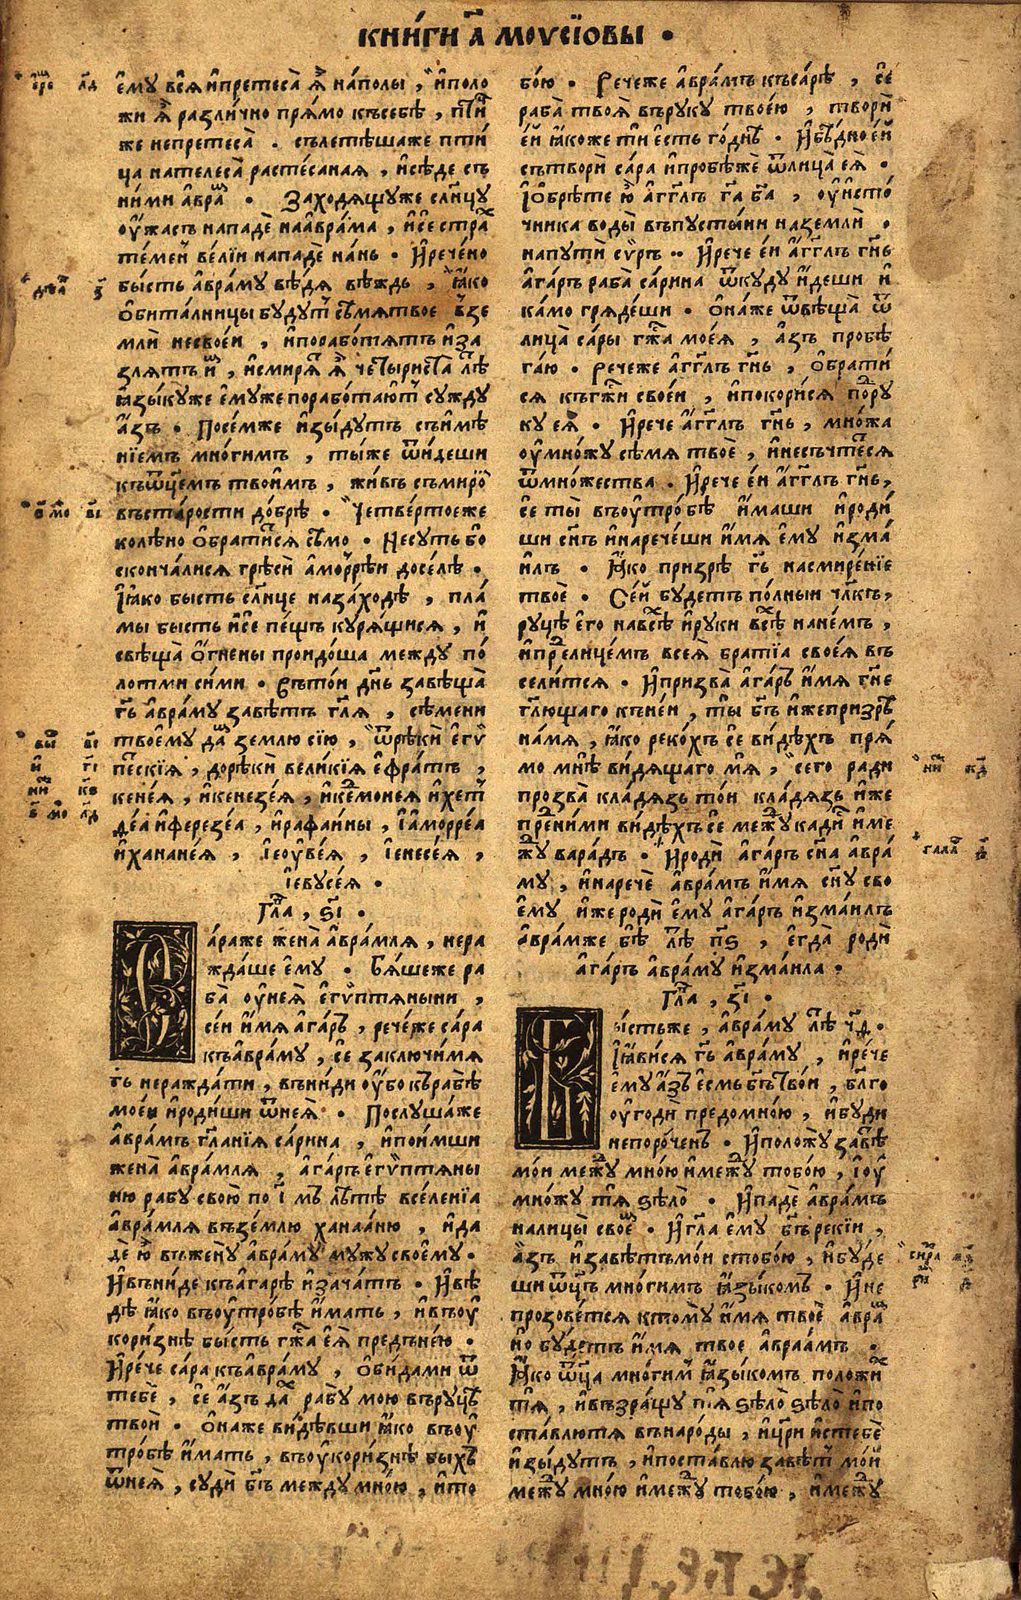 книги а҃ моусїовы •
ему вся и претеса ѧ҆ наполы, и поло
жи ѧ҆ различно прямо къ себѣ, пти
же не претеса • сълетѣшаже пти
ца на телеса растесаная, и сѣде съ
ними авра • Заходящуже слн҃цу
оужасъ нападе на аврама, и се стра
темен велїи нападе нань • И речено
бысть авраму вѣдя вѣждь, ꙗко
обиталницы будут сѣмя твое в зе
мли не своеи, и поработятъ и за
злятъ и, и смирят ѧ҆ четыриста лѣ
ꙗзыкуже емуже поработают сужду
азъ • Посемже изыдутъ съ имѣ
нїемъ многимъ, тыже ѿидеши
къ ѿц҃емъ твоимъ, живъ съ миро
въ старости добрѣ • Четвертоеже
колѣно обратится сѣмо • Не суть бо
скончалися грѣси аморрѣи доселѣ •
Ꙗко бысть слн҃це на заходѣ, пла
мы бысть и се пещь курящися, и
свѣща огнены проидоша между по
лотми сими • Въ тои дн҃ь завѣща
гь҃ авраму завѣтъ гл҃я, сѣмени
твоему да землю сїю, ѿ рѣки егѵ
пескїя, до рѣки великїя ефратъ,
кенея, и кенезея, и кемонея и хет
деа и ферезеа, и рафаины, и аморреа
и хананея, и еоувея, и енесея,
іевусея •
Гла, ѕ҃і •
Сараже жена аврамля, не ра
ждаше ему • Бяшеже ра
ба оу нея егѵптяныни,
сеи имя агаръ, речеже сара
къ авраму, се заключи мя
гь҃ не раждати, въниди оубо къ рабѣ
моеи и родиши ѿ нея • Послушаже
аврамъ гл҃анїя сарина, и поимши
жена аврамля, агаръ егѵптяны
ню рабу свою по і҃ мъ лѣтѣ вселенїя
аврамля въ землю ханааню, и да
де ю въ жену авраму мужу своему •
И въниде къ агарѣ и зачатъ • И вѣ
дѣ ꙗко въ оутробѣ имать, и въ оу
коризнѣ бысть гжа ея предънею •
И рече сара къ авраму, обидами ѿ
тебе, се азъ да рабу мою въ руцѣ
твои • онаже видѣвши ꙗко въ оу
тробѣ имать, въ оукоризнѣ быхъ
ѿ нея, суди бг҃ъ между мною, и то
бою • Речеже аврамъ къ сарѣ, се
раба твоя въ руку твоею, твори
еи ꙗкоже ти есть годнѣ • И бѣдно еи
сътвори сара и пробѣже ѿ лица ея •
И обрѣте ю агг҃лъ га҃ ба҃, оу источ
чника воды въ пустыни на земли •
на пути суръ •• И рече еи агг҃лъ гн҃ь
агаръ раба сарина ѿкуду идеши и
камо грядеши • онаже ѿвѣща ѿ
лица сары гжа моея, азъ пробѣ
гаю • Речеже агг҃лъ гн҃ь, обрати
ся къ гжи своеи, и покорися по ру
ку ея • И рече агг҃лъ гн҃ь, множа
оумножу сѣмя твое, и несъчтеся
ѿ множества • И рече еи агг҃лъ гн҃ь,
се ты въ оутробѣ имаши и роди
ши сн҃ъ и наречеши имя ему изма
илъ • Ꙗко призрѣ гь҃ на смиренїе
твое • Сеи будетъ полныи чл҃къ,
руцѣ его на всѣ и руки всѣ на немъ,
и пре лицемъ всея братїа своея въ
селится • И призва агаръ имя гн҃е
гл҃ющаго къ неи, ты бг҃ъ иже призрѣ
на мя, ꙗко рекохъ се видѣхъ пря
мо мнѣ видящаго мя, сего ради
прозва кладязь тои кладязь иже
пре ними видѣхъ се межу кади и ме
жу варадъ • И роди агаръ сн҃а авра
му, и нарече аврамъ имя сн҃у сво
ему иже роди ему агаръ измаилъ
аврамже бѣ лѣ п҃ѕ, егда роди
агаръ авраму измаила •
Гла, з҃і •
Бысть же, авраму лѣ ч҃ѳ •
И ꙗвися гь҃ авраму, и рече
ему азъ есмь бг҃ъ твои, бл҃го
оугоди предомною, и буди
непороченъ • И положу завѣ
мои межу мною и межу тобою, и оу
множу тя ѕѣло • И паде аврамъ
на лицы свое • И гл҃а ему бг҃ъ рекїи,
азъ и завѣтъ мои с тобою, и буде
ши ѿц҃ъ многимъ ꙗзыкомъ • И не
прозовется к тому имя твое авра
но будетъ имя твое авраамъ •
Ꙗко ѿц҃а многим ꙗзыкомъ положи
тя, и възращу тя ѕѣло ѕѣло и по
ставлютя въ народы, и цр҃и ис тебе
изыдутъ, и поставлю завѣт мои
межу мною и межу тобою, и межу